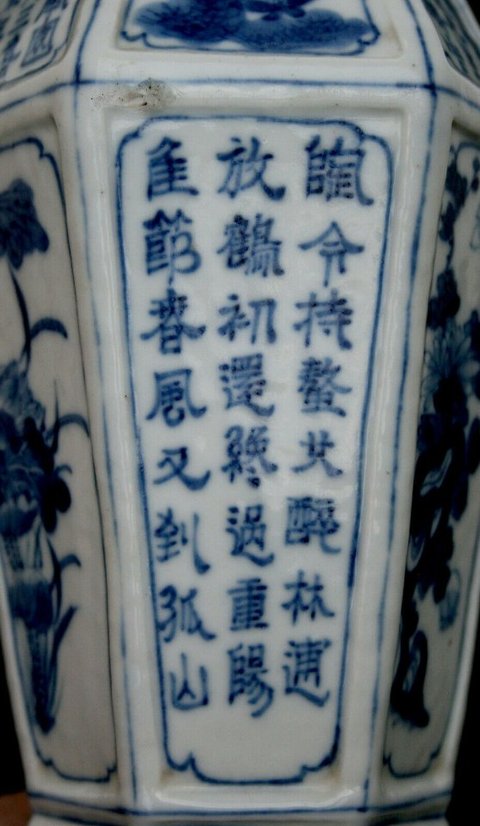 陶令持螯共醉林逋
放鶴初還纔過重陽
佳節春風又到孤山